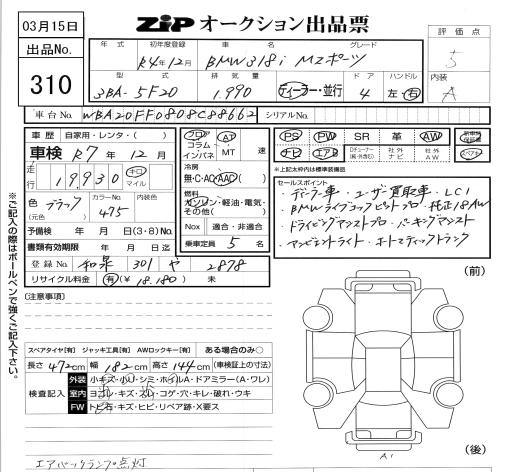 03月15日
ZIP オークション出品票
出品No.
310
評価点
5
内装
A
年式 初年度登録 車名 グレード
R4年12月 BMW318i Mスポーツ
型式 排気量 ドア ハンドル
3BA-5F20 1.990 ディーラー・並行 4 左・右
車台No. WBA20FF0808C88662 シリアルNo.
車歴 自家用・レンタ・( )
車検 R7年12月
走行 19,930 キロ マイル
色 ブラック (元色) カラーNo. 475 内装色
予備検 年 月 日(3・8)No.
書類有効期限 年 月 日迄
登録No. 和泉 301 や 2878
リサイクル料金 有(¥18.180) 未
フロア コラム インパネ AT MT 速
冷房 無・C・AC・AAC( )
燃料 ガソリン・軽油・電気・その他( )
Nox 適合・非適合
乗車定員 5 名
PS PW SR 革 AW 新車時保証書
ナビ エアB Dディーラー(純・外含む) 社外ナビ 社外AW
※上記太枠内は標準装備品
セールスポイント
・ディーラー車・ユーザー買取車・LCI
・BMWライブコックピットプロ・純正18AW
・ドライビングアシストプロ・パーキングアシスト
・アンビエントライト・オートマティックトランク
(注意事項)
スペアタイヤ[有] ジャッキ工具[有] AWロックキー[有] ある場合のみ○
長さ472cm 幅182cm 高さ144cm (車検証上の寸法)
検査記入
外装 小キズ・小リ・シミ・ホイルA・ドアミラー(A・ワレ)
室内 ヨゴレ・キズ・スレ・コゲ・穴・キレ・破れ・ウキ
FW トビ石・キズ・ヒビ・リペア跡・X要ス
エアバックランプ点灯
(前)
(後)
A1
※ご記入の際はボールペンで強くご記入下さい。